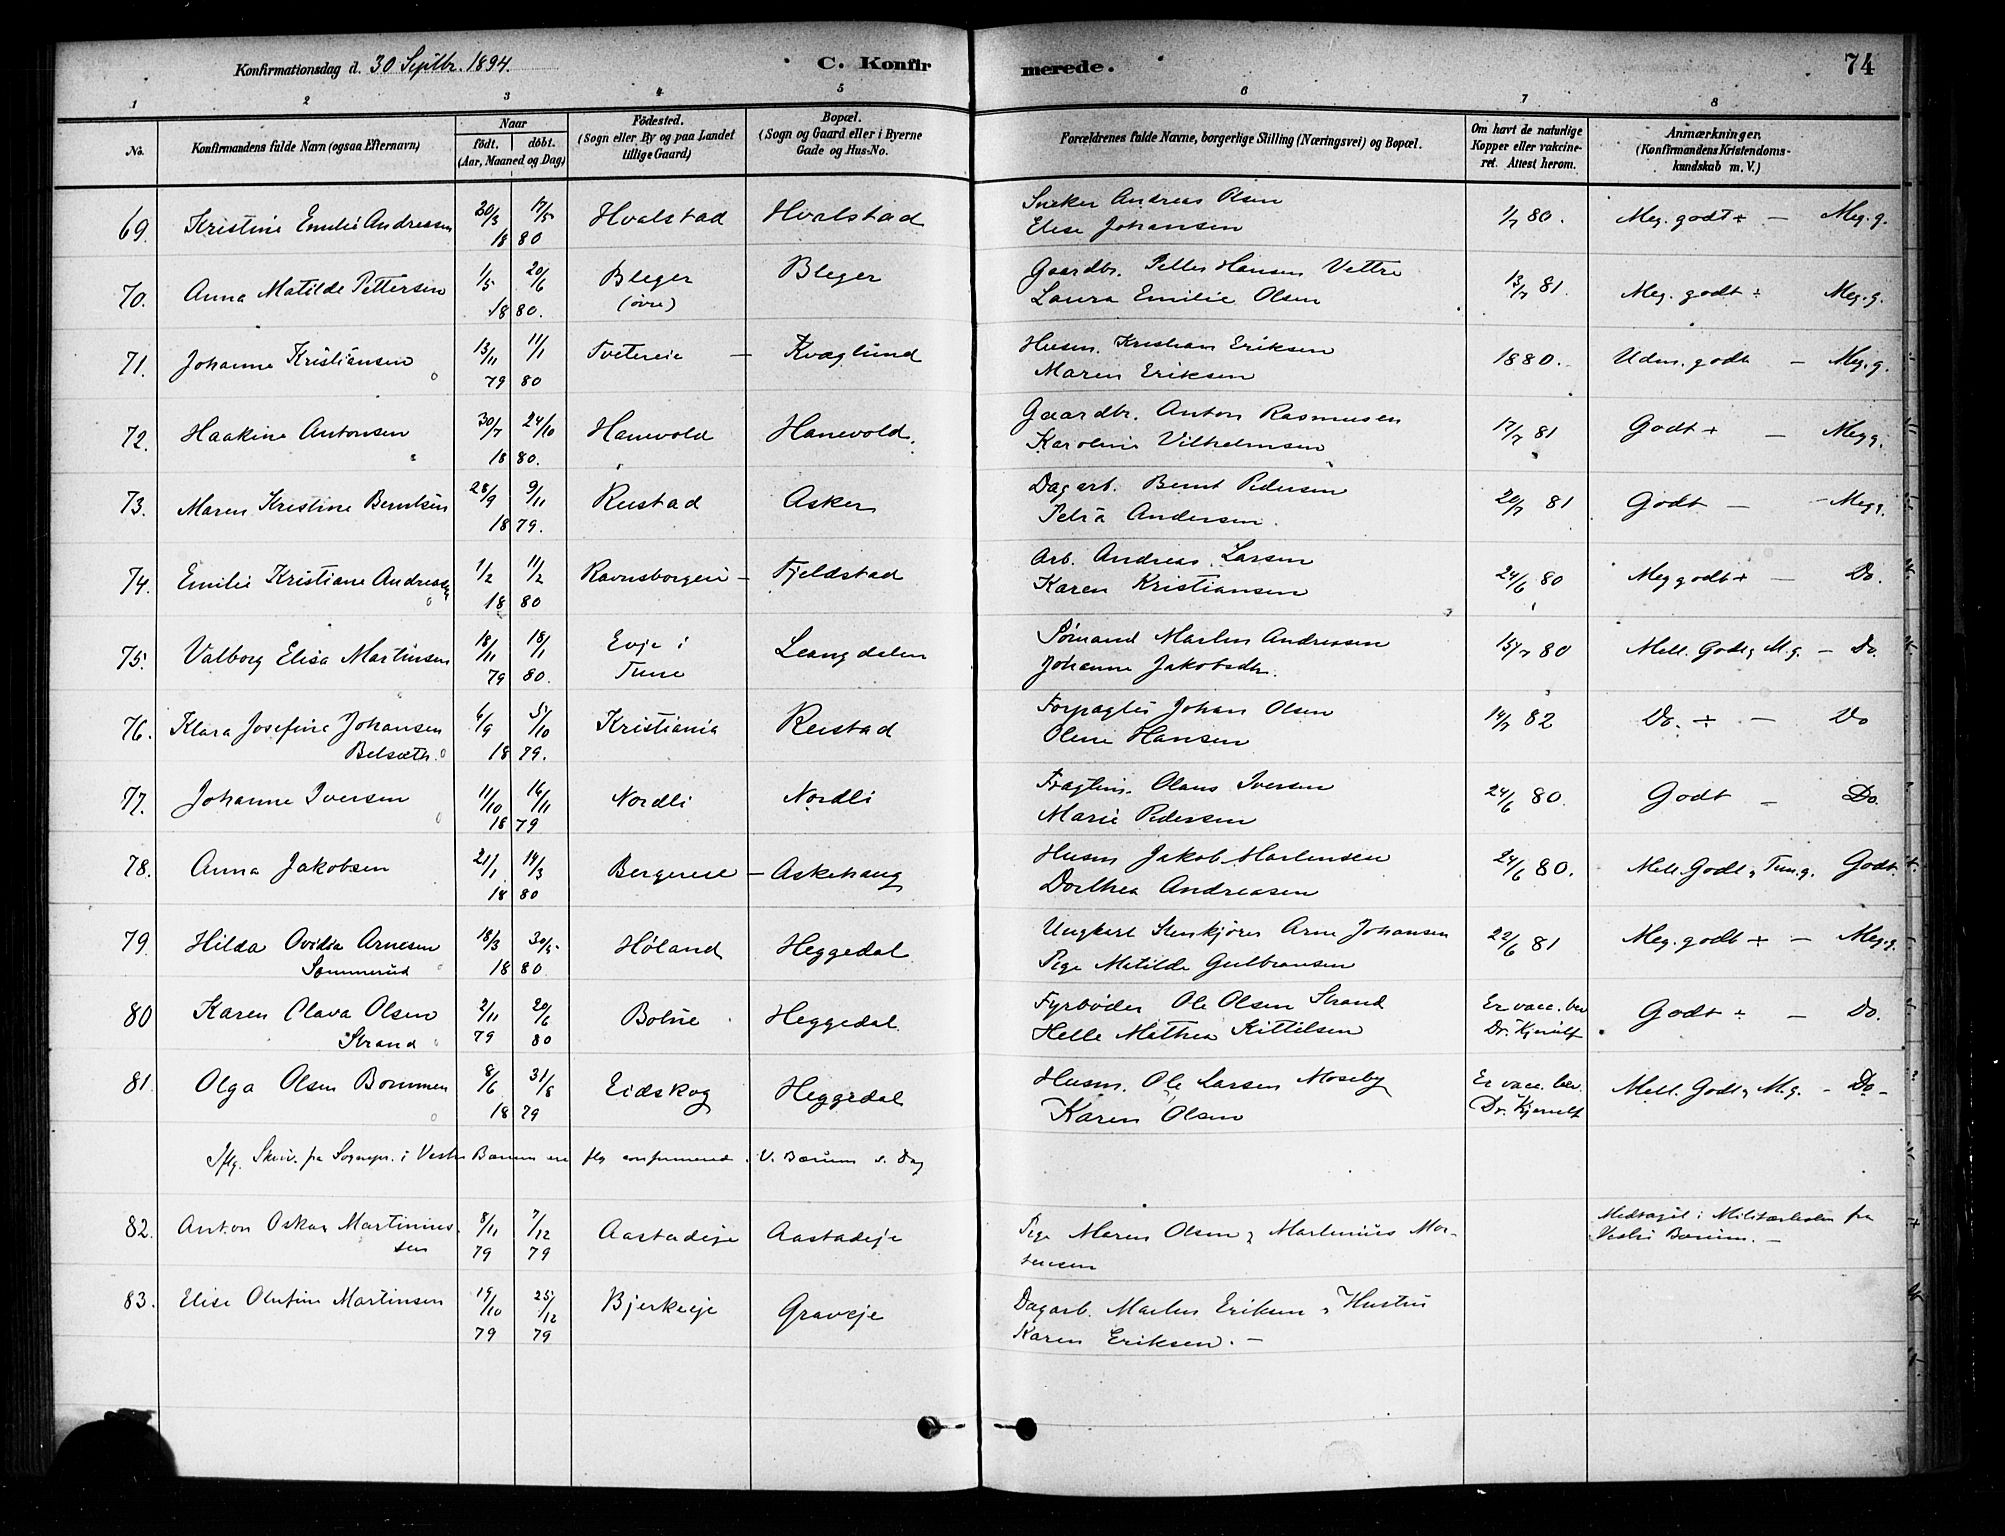 Konfirmationsdag d. 30 Septbr. 1894.
C. Konfirmerede.
74
1 2 3 4 5 6 7 8
No.
Konfirmandens fulde Navn (ogsaa Efternavn)
Naar
födt. döbt.
(Aar, Maaned og Dag)
Födested.
(Sogn eller By og paa Landet
tillige Gaard)
Bopæl.
(Sogn og Gaard eller i Byerne
Gade og Hus-No.
Forældrenes fulde Navne, borgerlige Stilling (Næringsvei) og Bopæl.
Om havt de naturlige
Kopper eller vakcine-
ret. Attest herom.
Anmærkninger.
(Konfirmandens Kristendoms-
kundskab m. V.)
69. Kristine Emilie Andressen 20/3 17/5 Hvalstad Hvalstad Andreas Olsen 1/7 80. Meg. godt + — Meg. g.
18 80 Elise Johansen
70. Anna Matilde Pettersen 1/5 20/6 Bleger Bleger Gaardbr. Petter Hansen Vettre 13/7 81. Meg. godt + Meg. g.
18 80. (övre) Laura Emilie Olsen
71. Johanne Kristiansen 13/11 11/1 Tvetereie — Kvaglund Husm. Kristian Eriksen 1880. Udm. godt — Meg. g.
79 80 Maren Eriksen
72. Haakine Antonsen 30/7 24/10 Hanevold Hanevold. Gaardbr. Anton Rasmusen 17/7 81 Godt + — Meg g.
18 80. Karoline Vilhelmsen
73. Maren Kristine Berntsen 28/9 9/11 Reistad Asker Dagarb. Bernt Pedersen 20/7 81 Godt — — Meg g.
18 79. Petra Andersen.
74. Emilie Kristiane Andreas 1/2 11/2 Ravnsborgeie — Fjeldstad Arb. Andreas Larsen 24/6 80 Meg godt + — Do.
18 80 Karen Kristiansen
75. Valborg Elisa Martinsen 18/11 18/1 Evje i Leangdalen Sömand Martin Andreasen 15/7 80 Mell. Godt og M. g. — Do.
79 80. Tune Johanne Jakobsdtr.
76. Klara Josefine Johansen 6/9 5/10 Kristiania Reistad Forpagter Johan Olsen 14/7 82 Do. + — Do
Belsæth. 18 79. Oline Hansen
77. Johanne Iversen 11/10 16/11 Nordli Nordli Olaus Iversen 24/6 80. Godt — Do.
18 79 Marie Pedersen
78. Anna Jakobsen 21/1 14/3 Bergereie — Askehaug Husm Jakob Martinsen 24/6 80. Mell. Godt og Tem. g. Godt.
18 80 Dorthea Andreasen
79. Hilda Ovidia Arnesen 18/3 30/5 Höland Heggedal Ungkarl Arne Johansen 22/6 81 Meg. godt + — Meg. g.
Sommerud 18 80. Pige Matilde Gulbransen
80 Karen Olava Olsen 2/11 20/6 Heggedal. Fyrböder Ole Olsen Strand Er vacc. bev Godt + — Do.
Strand 79 80 Helle Mathea Kittilsen Dr. Kjerulf
81. Olga Olsen Bommen 8/6 31/8 Eidskog Heggedal Husm. Ole Larsen Moseby Er vacc. bev. Mell. Godt og M. g. — Do —
18 79 Karen Olsen Dr. Kjerulf
Iflg. Skriv. fra Sognepr. i Vestre Bærum er flg confirmered i V. Bærum s. Dag
82. Anton Oskar Martinius 8/11 7/12 Aastadeje Aastadeje Pige Maren Olsen og Martinius Mor- Medtaget i Militærlisten fra
sen 79 79 tensen Vestre Bærum. —
83. Elise Olufine Martinsen 19/10 25/12 Bjerkeeje Graveje Dagarb. Martin Eriksen og Hustru
79 79 Karen Eriksen. —